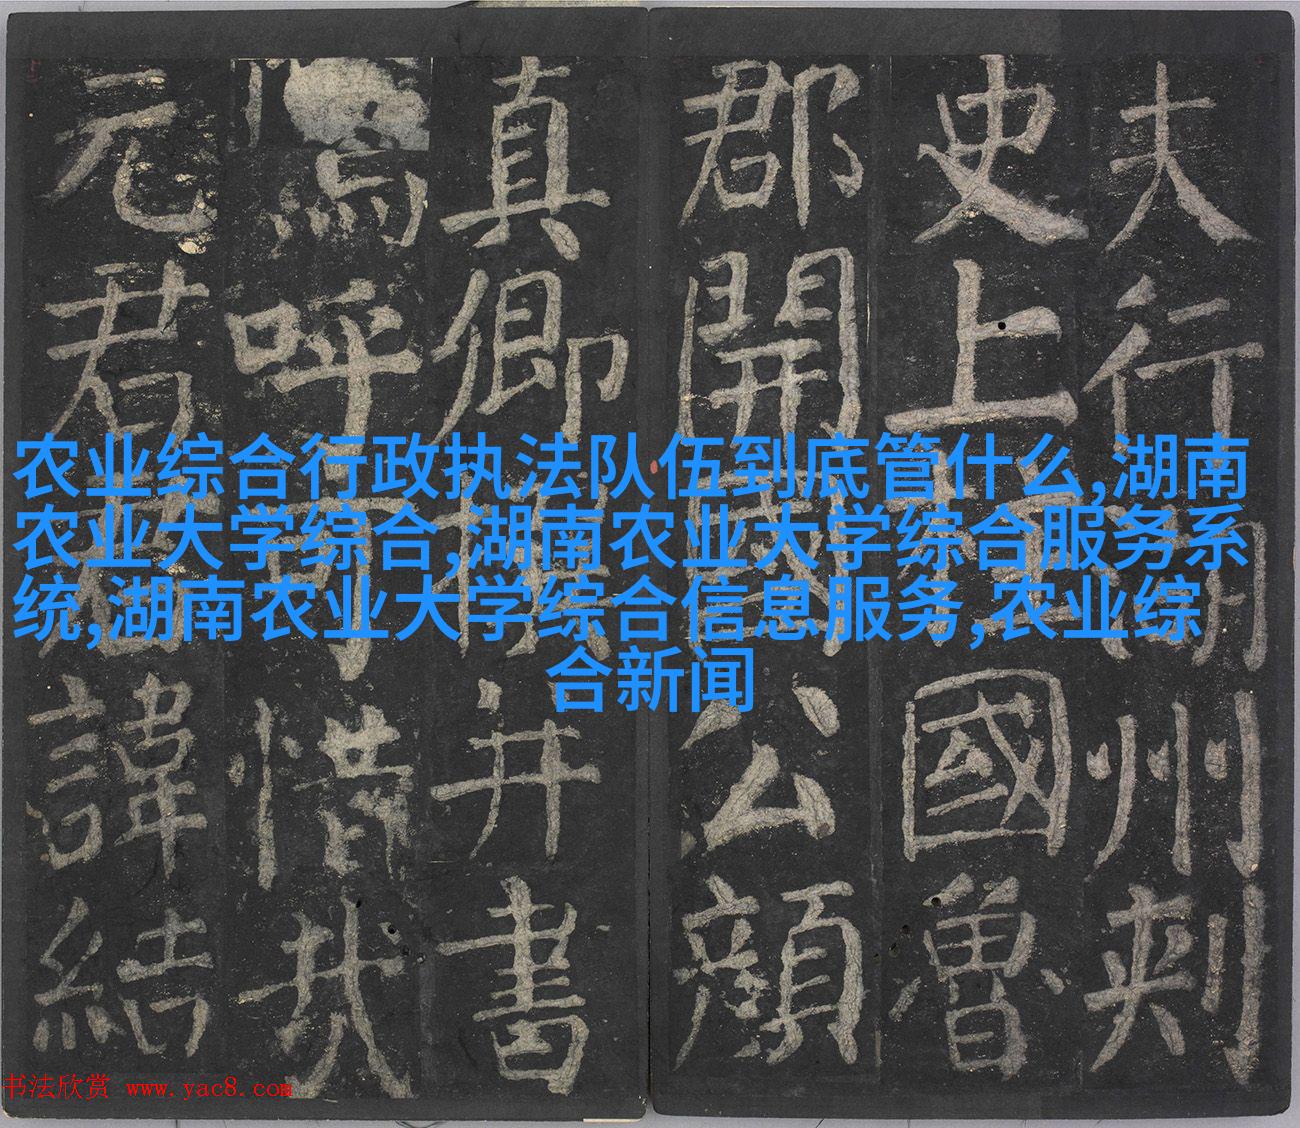 夫行湖州刾
史上柱國魯
郡開國公顏
真卿撰并書
嗚呼可惜哉
元君君諱結
农业综合行政执法队伍到底管什么,湖南
农业大学综合,湖南农业大学综合服务系
统,湖南农业大学综合信息服务,农业综
合新闻
书法欣赏 www.yac8.com